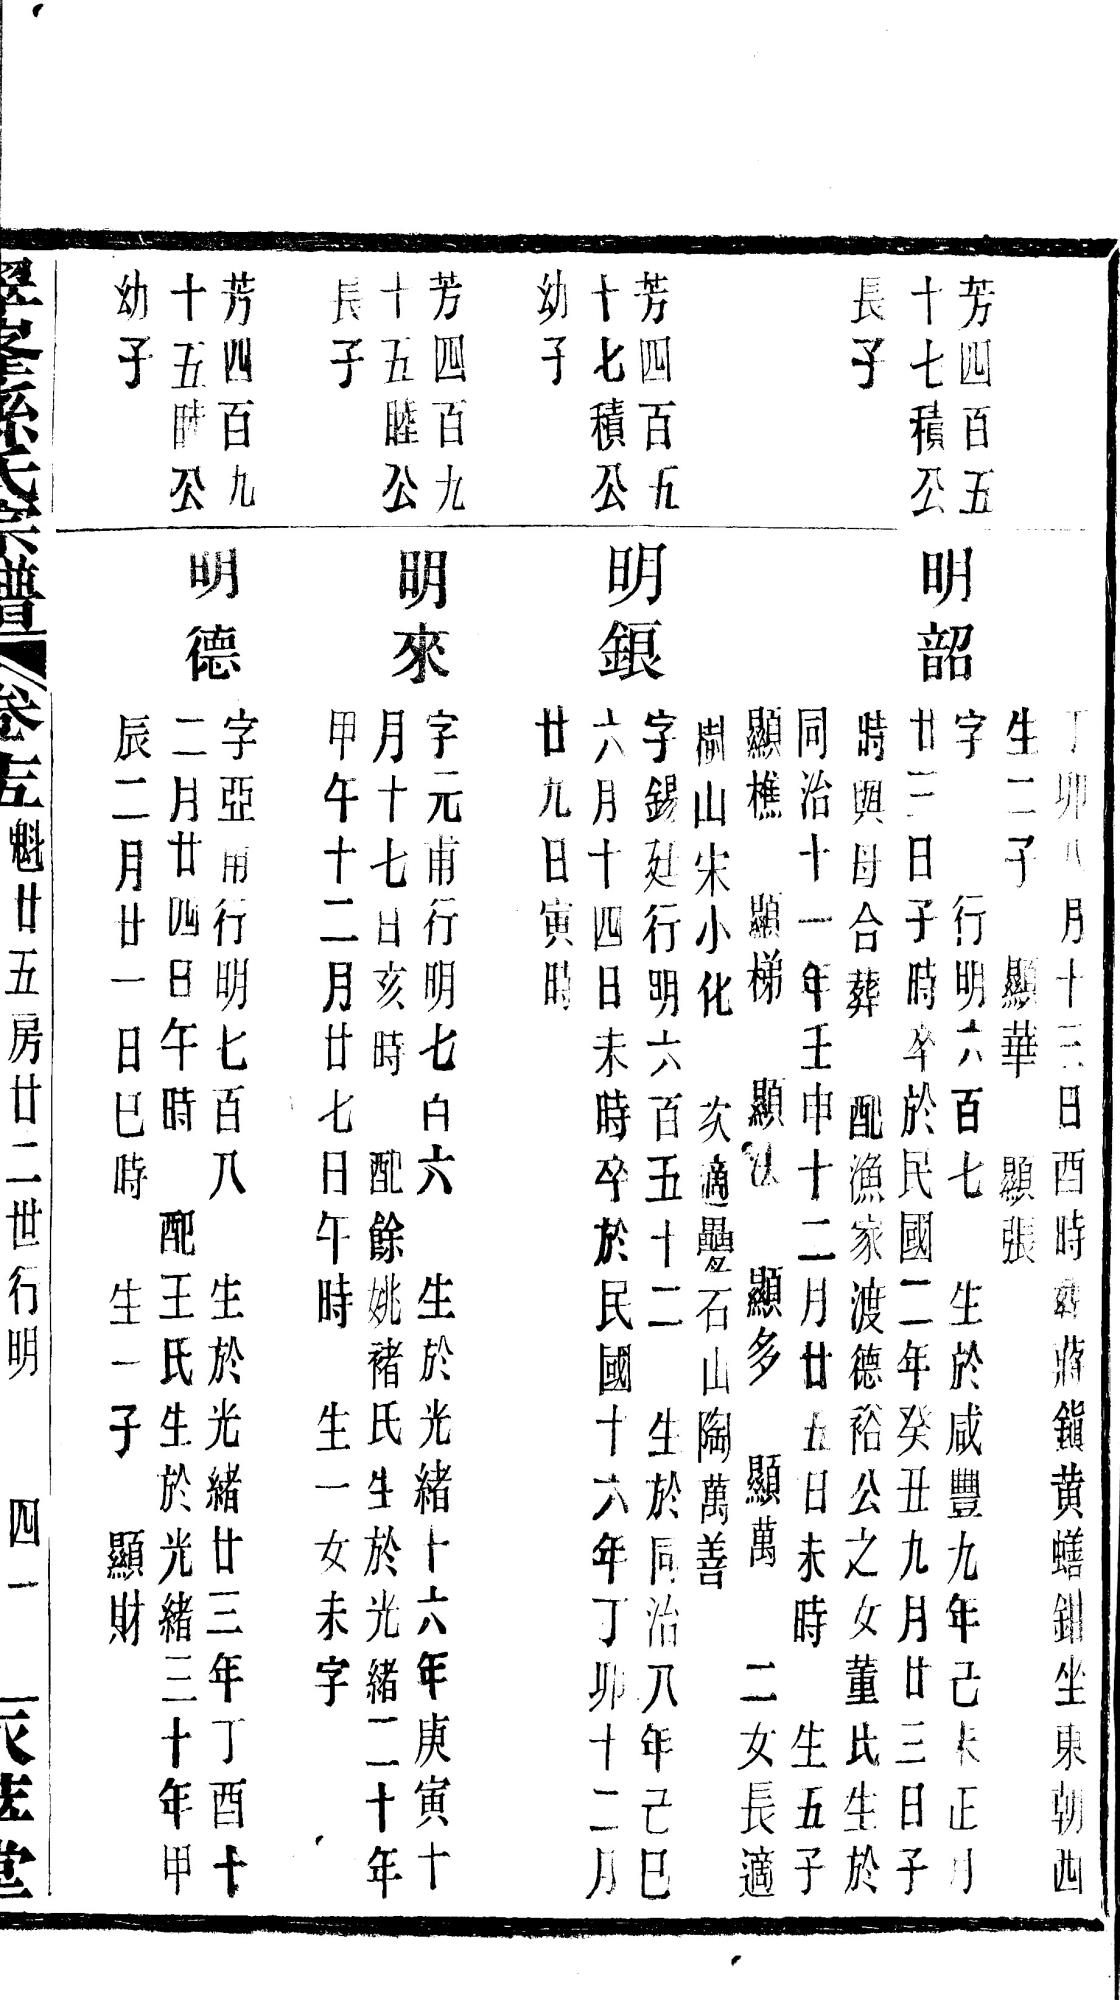 丁卯八月十三日酉時葬蔣鎮黄蟮鉗坐東朝西
生二子　顯華　顯張
芳四百五
十七積公
長子
明韶
字　行明六百七　生於咸豐九年己未正月
廿三日子時卒於民國二年癸丑九月廿三日子
時與母合葬　配漁家渡德裕公之女董氏生於
同治十一年壬申十二月廿五日未時　生五子
顯樵　顯梯　顯法　顯多　顯萬　二女長適
樹山宋小化　次適疊石山陶萬善
芳四百五
十七積公
幼子
明鋃
字錫廷行明六百五十二　生於同治八年己巳
六月十四日未時卒於民國十六年丁卯十二月
廿九日寅時
芳四百九
十五睦公
長子
明來
字元甫行明七百六　生於光緒十六年庚寅十
月十七日亥時　配餘姚褚氏生於光緒二十年
甲午十二月廿七日午時　生一女未字
芳四百九
十五睦公
幼子
明德
字亞甫行明七百八　生於光緒廿三年丁酉十
二月廿四日午時　配王氏生於光緒三十年甲
辰二月廿一日巳時　生一子　顯財
孫氏宗譜　卷十五　魁廿五房廿二世行明　四一　堂